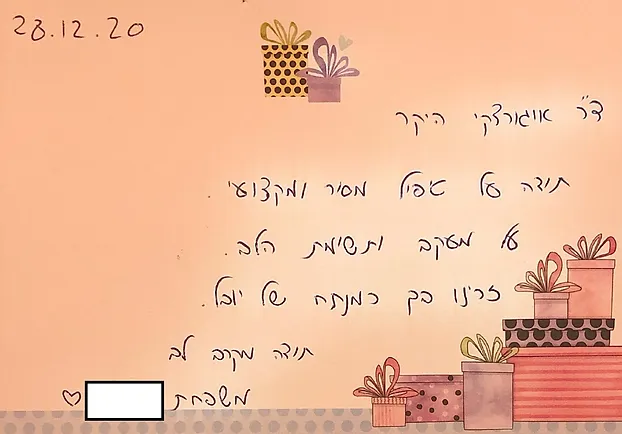 28.12.20
ד"ר אוגורצקי היקר
תודה על טיפול מסור ומקצועי.
על מעקב ותשימת הלב.
זכינו בך כמנתח של יובל.
תודה מקרב לב
משפחת